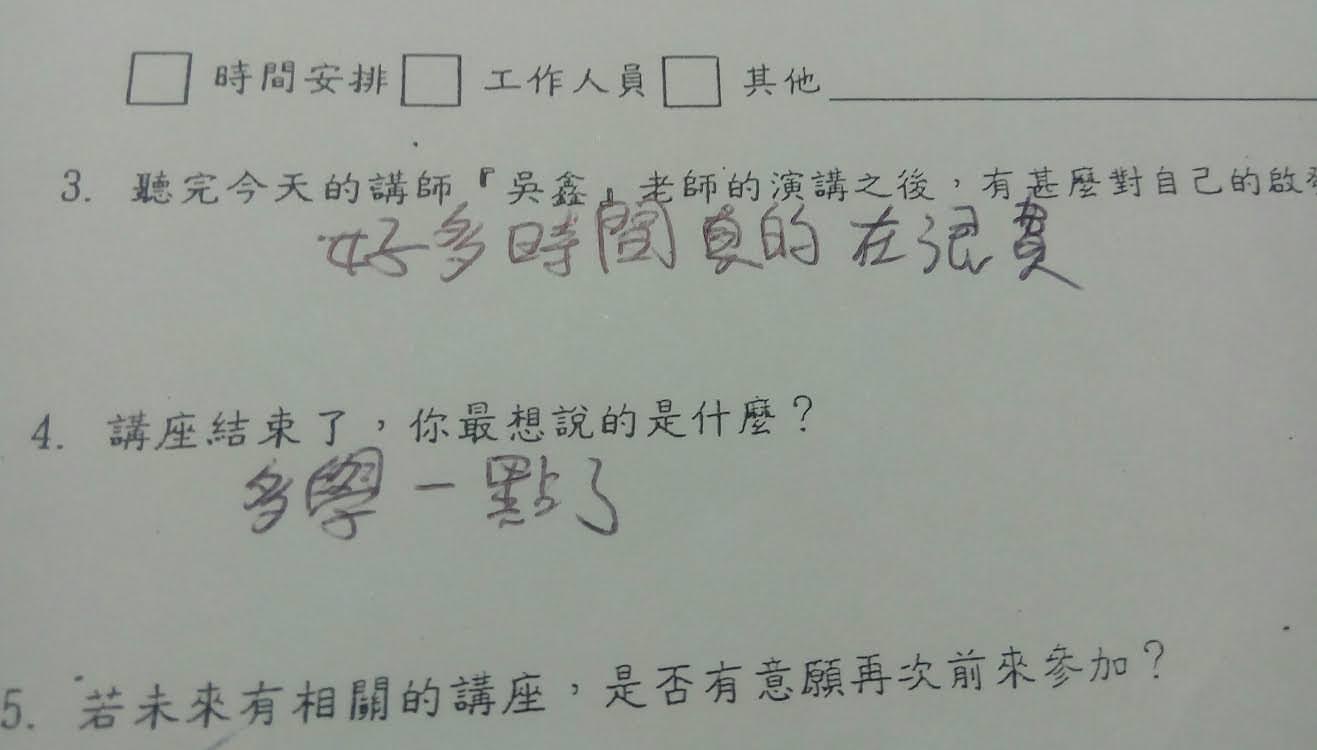 □ 時間安排 □ 工作人員 □ 其他
3. 聽完今天的講師『吳鑫』老師的演講之後，有甚麼對自己的啟
好多時間真的在浪費
4. 講座結束了，你最想說的是什麼？
多學一點了
5. 若未來有相關的講座，是否有意願再次前來參加？